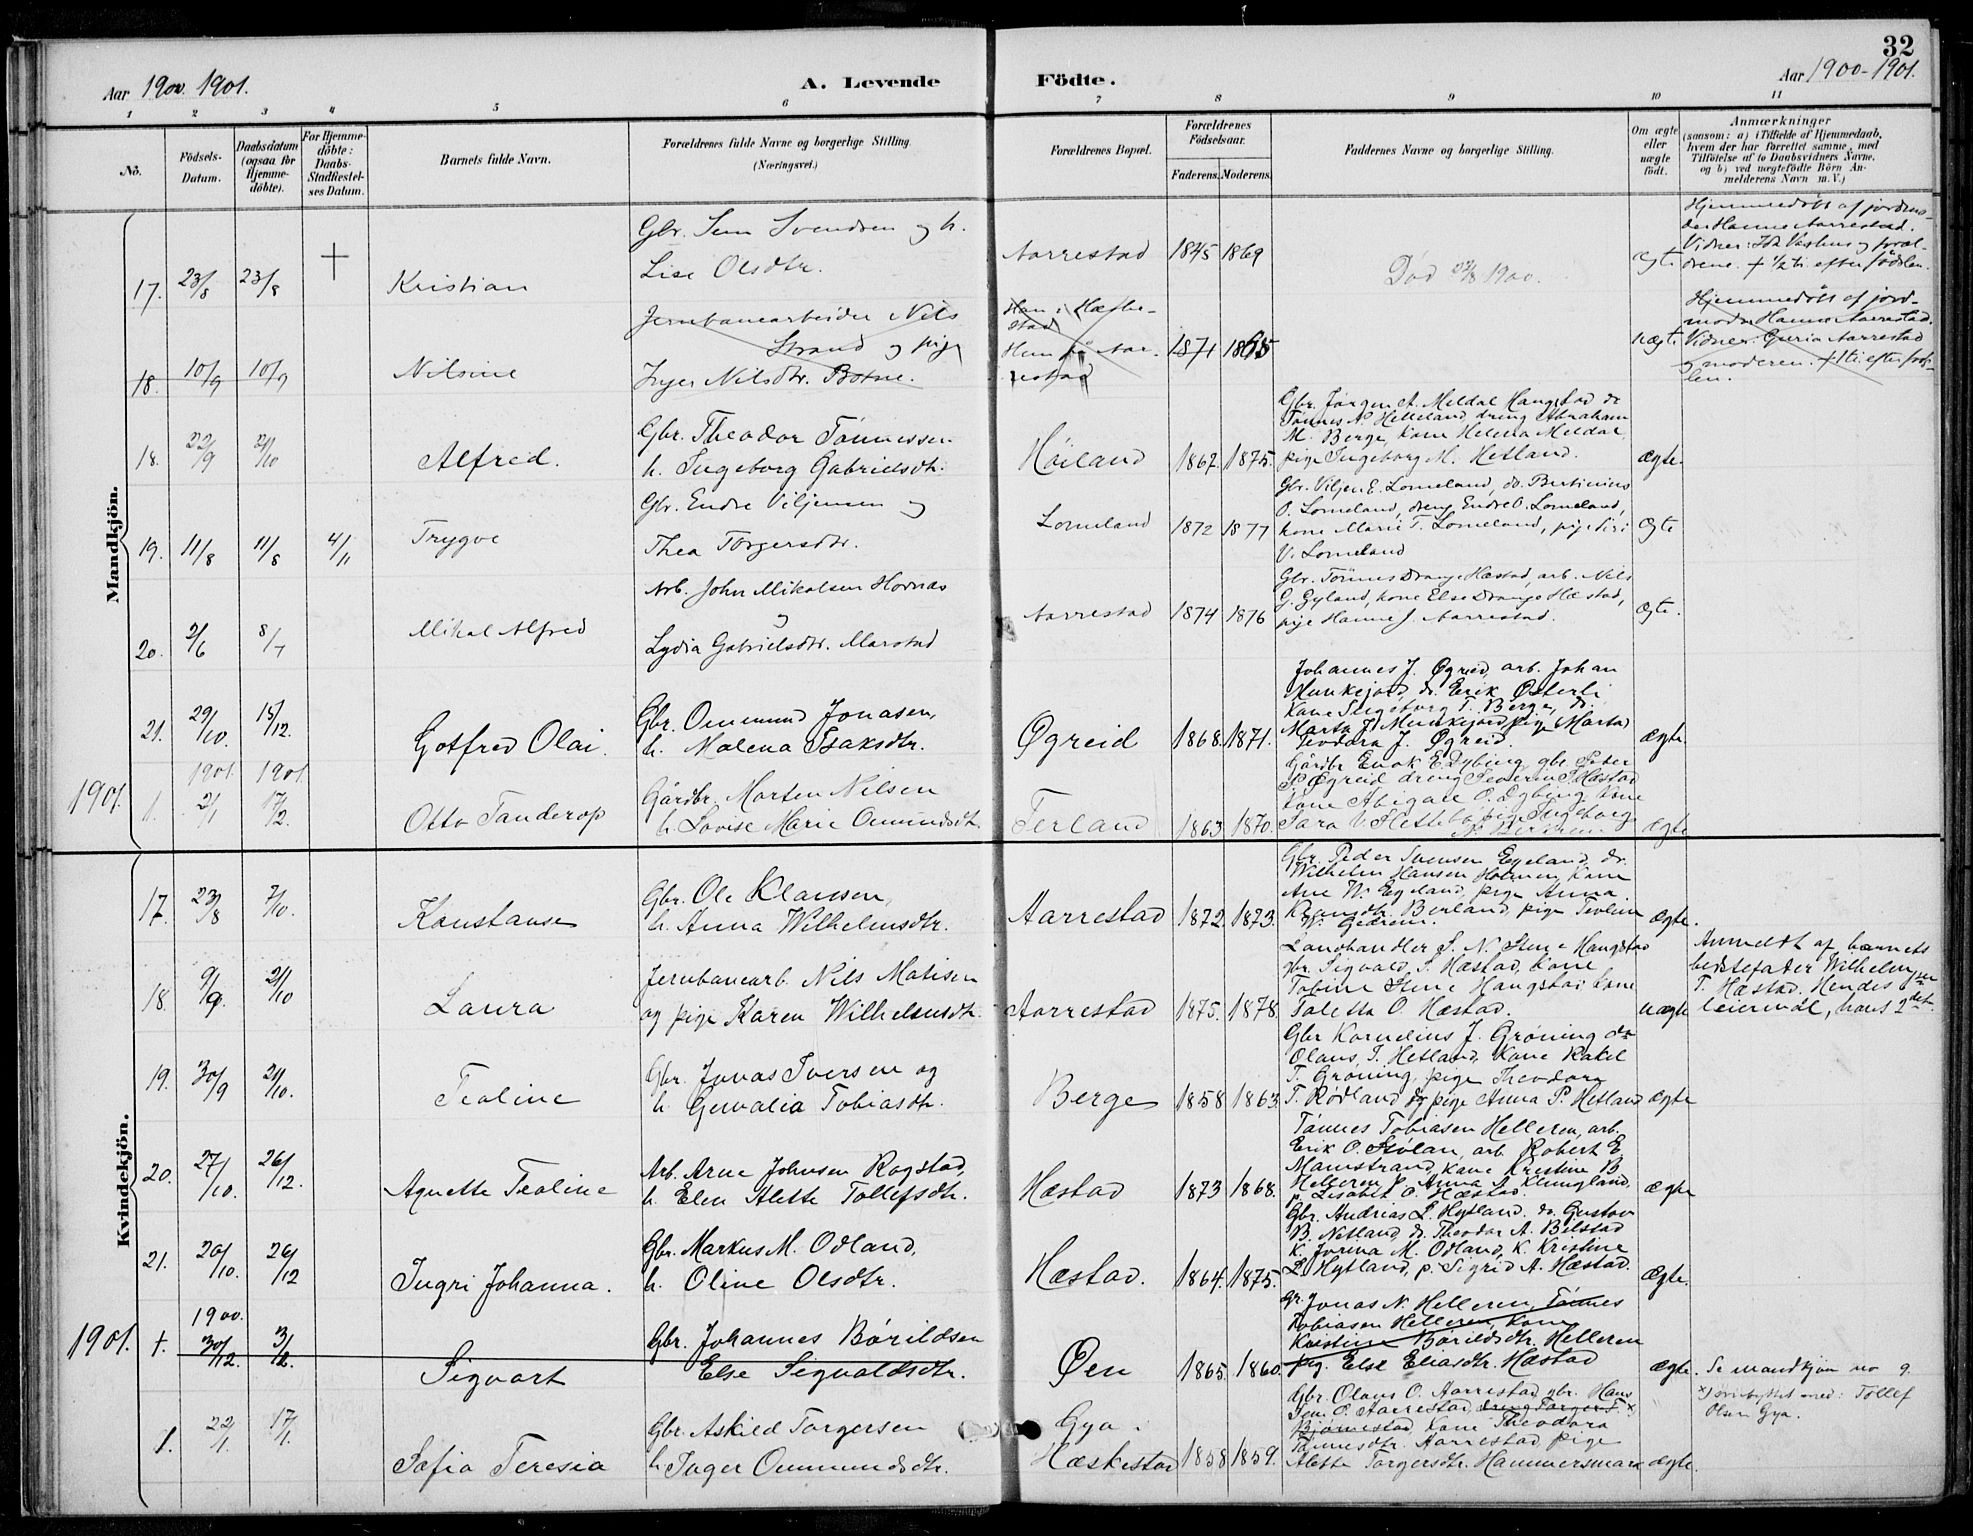 32
Aar 1900. 1901.
A. Levende
Födte.
Aar 1900-1901.
1 2 3 4 5 6 7 8 9 10 11
No.
Födsels-Datum.
Daabsdatum (ogsaa for Hjemme-döbte).
For Hjemme-döbte: Daabs-Stadfæstel-ses Datum.
Barnets fulde Navn.
Forældrenes fulde Navne og borgerlige Stilling. (Næringsvei.)
Forældrenes Bopæl.
Forældrenes Födselsaar.
Faderens. Moderens.
Faddernes Navne og borgerlige Stilling.
Om ægte eller uægte födt.
Anmærkninger
(saasom: a) i Tilfælde af Hjemmedaab,
hvem der har forrettet samme, med
Tilföielse af to Daabsvidners Navne,
og b) ved uægtefödte Börn An-
melderens Navn m. V.)
Mandkjön.
17. 23/8 23/8 + Kristian
Gbr. Sem Svendsen og h.
Lise Olsdtr.
Aarrestad 1845 1869
Død 1900.
ægte
Hjemmedöbt af jordmo-
der Hanne Aarrestad.
Vidner: og foræl-
drene. + 1/2 ti. efter födslen.
18. 10/9 10/9 Nilsine
Jernbanearbeider Nils
Strand og pige
Inger Nilsdtr. Botne.
Han: Hæske-
stad
Hun på Aar-
restad
1871 1865
uægte
Hjemmedöbt af jord-
moder Hanne Aarrestad.
Vidner: Guria Aarrestad
og moderen. + 1 ti. efter föds-
len.
18. 22/9 21/10 Alfred.
Gbr. Theodor Tönnessen
h. Ingeborg Gabrielsdtr.
Höiland 1867. 1875.
Gbr. Jörgen A. Meldal Haugstad do
Tönnes A. Helleland, dreng Abraham
M. Berge, kone Helena Meldal,
pige Ingeborg M. Hetland.
ægte.
19. 11/8 11/8 4/11 Trygve
Gbr. Endre Viljemsen og
Thea Torgersdtr.
Lomeland 1872 1877
Gbr. Viljen E. Lomeland, do. Bertinius
O. Lomeland, dreng Endre O. Lomeland,
kone Marie T. Lomeland, pige Siri
V. Lomeland
ægte
20. 2/6 8/7 Mikal Alfred
Arb. John Mikalsen Hovnas
og
Lydia Gabrielsdtr. Marstad
Aarrestad 1874 1876
Gbr. Tönnes Drange Hæstad, arb. Nils
G. Gyland, kone Else Drange Hæstad,
pige Hanne J. Aarrestad.
ægte.
21. 29/10. 15/12. Gotfred Olai.
Gbr. Ommund Jonasen,
h. Malena Isaksdtr.
Øgreid 1868. 1871.
Johannes J. Øgreid, arb. Johan
Munkejord, do. Erik Østerli
Kone Ingeborg T. Berge, do.
Marta J. Munkejord, pige Marta
Teodora J. Øgreid.
ægte.
1901. 1901. 1901.
1. 2/1 17/2. Otto Tanderup
Gårdbr. Morten Nilsen
h. Lovise Marie Omundsdtr.
Terland 1863 1870.
Gårdbr Enok E. Dybing, gbr. Peter
P. Øgreid dreng Severin S. Hæstad
Kone Abigael O. Dybing, Kone
Sara V. Slettebö, pige Ingeborg
ægte
Kvindekjön.
17. 23/8 7/10. Konstanse
Gbr. Ole Klausen,
h. Anna Wilhelmsdtr.
Aarrestad 1872. 1873.
Gbr. Peder Svensen Egeland, do.
Wilhelm Hansen Holmen, Kone
Ane W. Egeland, pige Anna
Berland, pige Teoline
W.
ægte.
18. 9/9. 21/10 Laura
Jernbanearb. Nils Matisen
og pige Karen Wilhelmsdtr.
Aarrestad 1875. 1878.
Landhandler S. N. Stene Haugstad
gbr. Sigvald S. Hæstad, Kone
Tobine Stene Haugstad, Kone
Taletta O. Hæstad.
uægte
Anmeldt af barnets
bedstefader Wilhelm
T. Hæstad. Hendes 1ste
leiermål, hans 2det.
19. 30/9 21/10. Teoline
Gbr. Jonas Iversen og
h. Gunvalia Tobiasdtr.
Berge 1858. 1863.
Gbr Kornelius J. Gröning do
Olaus T. Hetland, Kone Rakel
T. Gröning, pige Theodora
T. Rödland og pige Anna P. Hetland
ægte
20. 27/10. 26/12. Agnette Teoline
Arb. Arne Johnsen Rogstad,
h. Elen Alette Tollefsdtr.
Hæstad 1873 1868.
Tönnes Tobiasen Helleren, arb.
Erik O. Stölan, arb Robert E.
Mannstrand, kone Kristine B.
Helleren, p. Anna A. Klungland,
p. Lisabet O. Hæstad.
ægte
21. 20/10. 26/12 Ingri Johanna.
Gbr. Markus M. Odland,
h. Oline Olsdtr.
Hæstad. 1864. 1875.
Gbr. Andrias L. Hytland. do. Gustav
B. Netland, do. Theodor A. Bilstad
K. Jorina M. Odland, K. Kristine
L. Hytland, p. Sigrid A. Hæstad.
ægte.
1901. 1900.
1. 30/12. 3/2. Sigvart
Gbr. Johannes Börildsen
Else Sigvaldsdtr.
Øen 1865. 1860.
Gr. Jonas N. Helleren, Tönnes
Tobiasen Helleren, Kone
Kristine Börildsdtr. Helleren
pig. Else Eliasdtr. Hæstad
ægte.
Se mandkjön no 9.
1. 22/1. 17/1. Sofia Teresia
Gbr. Askild Torgersen
h. Inger Ommundsdtr.
Gya.
Hæskestad 1858 1859.
Gbr. Olaus O. Aarrestad, gbr. Hans
Jens O. Aarrestad, dreng Torger T. x)
Björnestad, Kone Theodora
Tönnesdtr. Aarrestad, pige
Alette Torgersdtr. Hammersmark
ægte.
x) ombyttet med: Tollef
Olsen Gya.